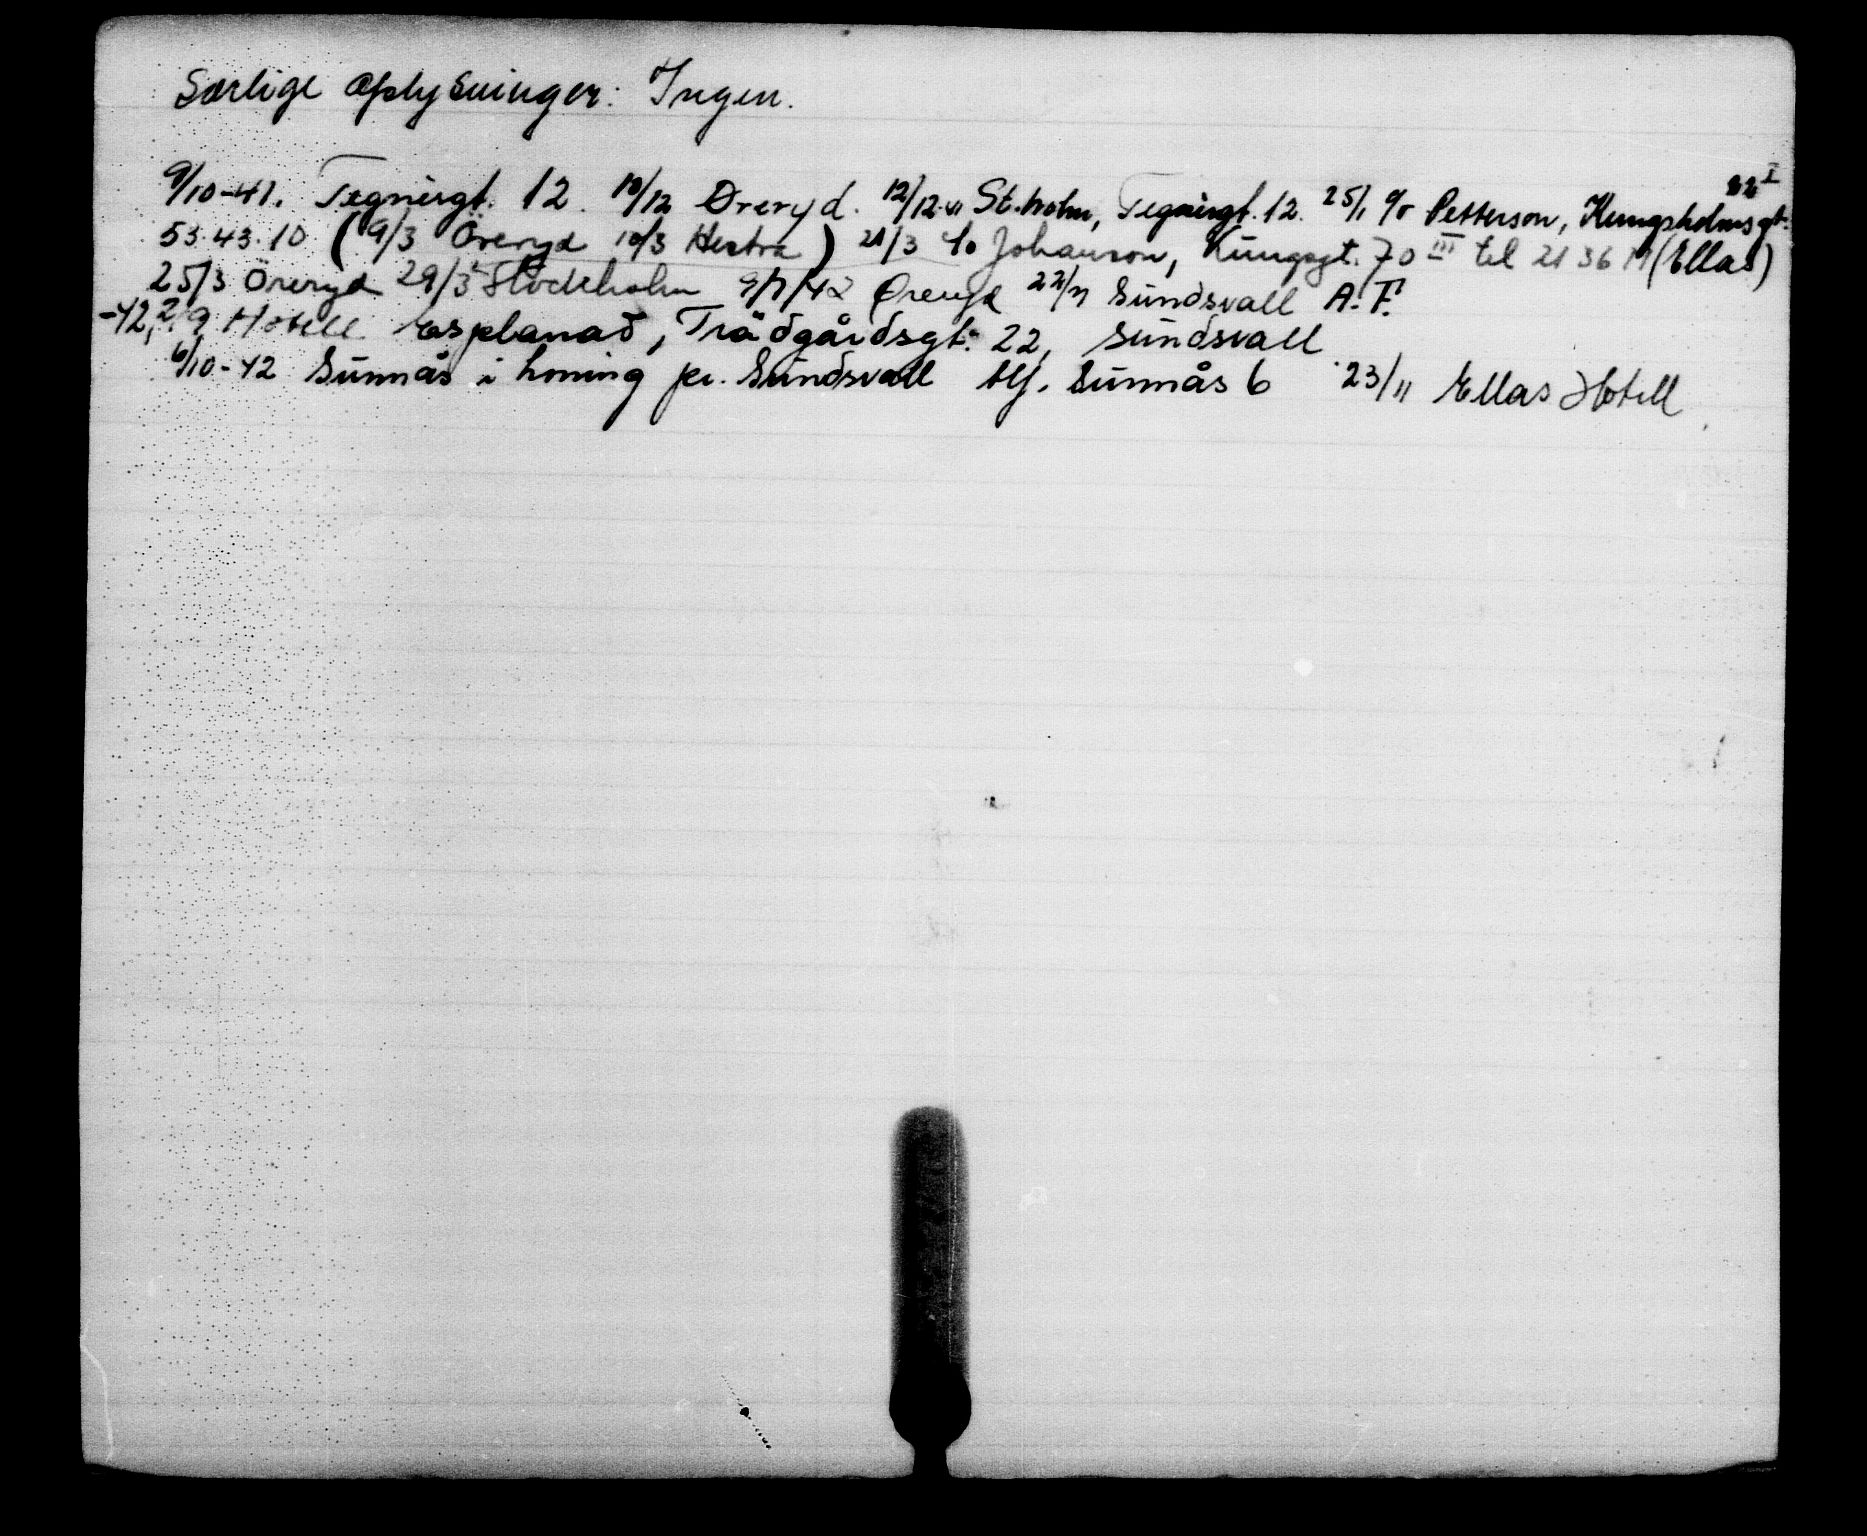 Særlige Oplysninger: Ingen.
9/10-41. Tegnérgt. 12. 10/12 Øreryd. 12/12-41 St.holm, Tegnérgt. 12. 25/1 c/o Petterson, Kungsholmsgt. 22 I
53.43.10 (9/3 Öreryd 10/3 Hestra) 21/3 c/o Johanson, Kungsgt. 70 III tel 21 36 (Ellas)
25/3 Öreryd 29/3 Stockholm 9/7/42 Øreryd 22/7 Sundsvall A.F.
-42, 2/9 Hotell Esplanad, Trädgårdsgt. 22, Sundsvall
6/10-42 Sunnås i Loning pr. Sundsvall tlf. Sunnås 6 23/11 Ellas Hotell